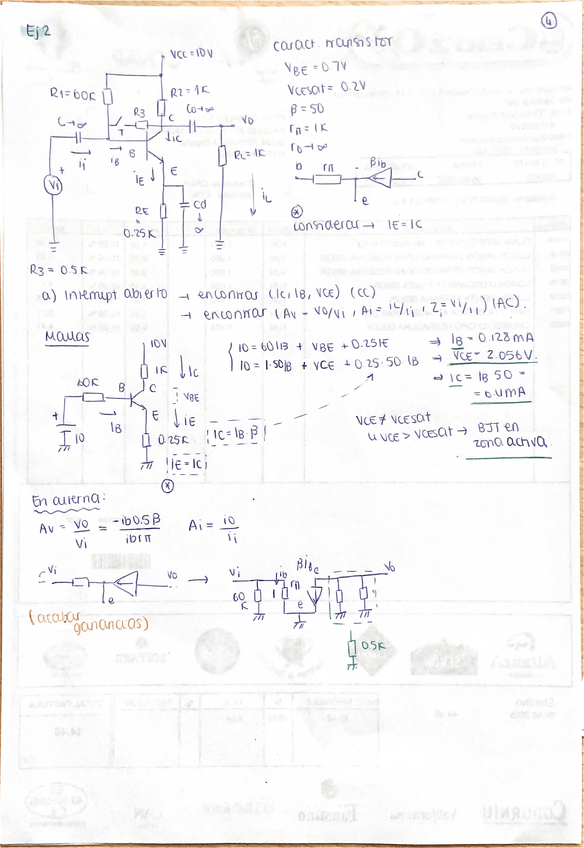 Ej 2
4
VCC = 10V
caract. transistor
VBE = 0.7V
VCEsat = 0.2V
β = 50
rπ = 1K
ro → ∞
R1 = 60K
R2 = 1K
C→∞
R3
C
C0→∞
Vo
T
B
iC
ii
iB
E
RL = 1K
iE
iL
+
Vi
RE
"
0.25K
Cd
↓
∞
b
rπ
βib
c
e
* considerar → IE = IC
R3 = 0.5K
a) Interrupt abierto → encontrar (IC, IB, VCE) (CC)
→ encontrar (Av - Vo/Vi, Ai = iL/ii, Zi = Vi/ii) (AC).
Mallas
10V
1K
IC
60K
B
C
VBE
E
IB
IE
10
0.25K
IC = IB·β
IE = IC
*
10 = 60IB + VBE + 0.25IE
10 = 1·50IB + VCE + 0.25·50 IB
⇒ IB = 0.128mA
⇒ VCE = 2.056V.
⇒ IC = IB 50 =
= 6'4mA
VCE ≠ VCEsat
u VCE > VCEsat → BJT en
zona activa
En alterna:
Av = Vo/Vi = -ib0.5β/ibrπ Ai = io/ii
Vi
Vo
e
→
Vi
ib
βib
c
Vo
60
K
rπ
e
0.5K
(acabar
ganancias)